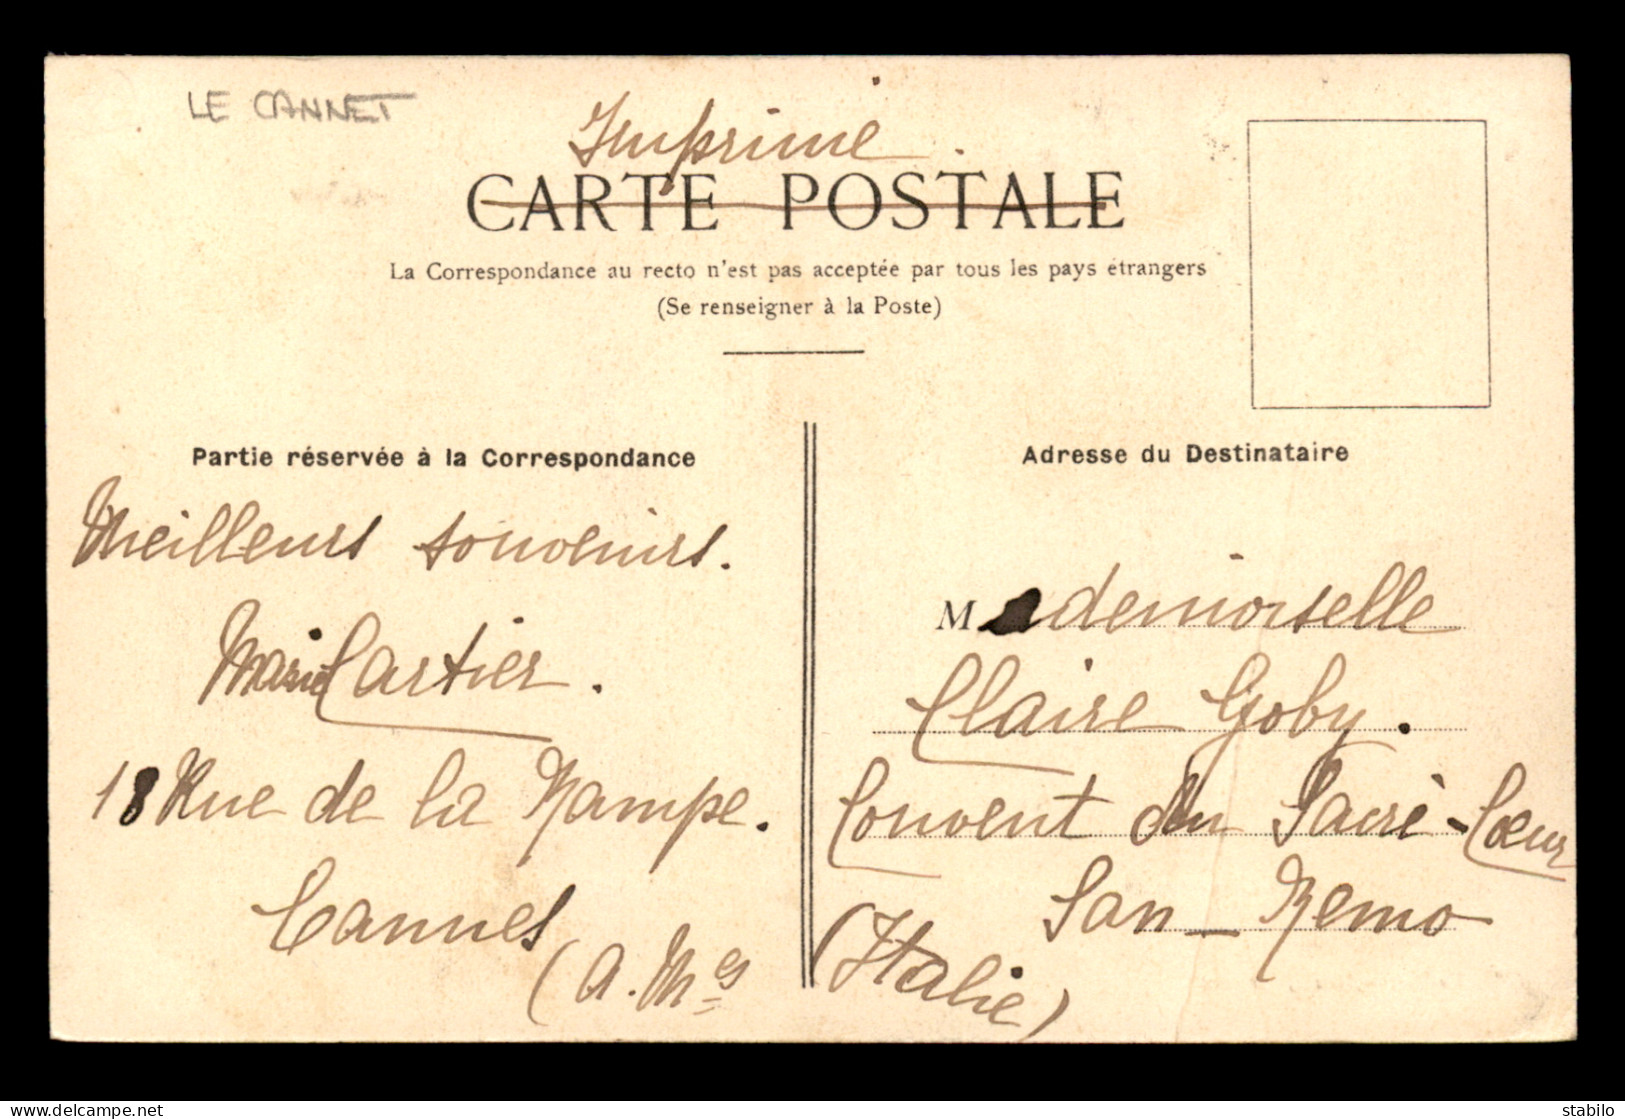 LE CANNET
Imprimé.
CARTE POSTALE
La Correspondance au recto n'est pas acceptée par tous les pays étrangers
(Se renseigner à la Poste)
Partie réservée à la Correspondance
Meilleurs souvenirs.
Marie Cartier.
18 Rue de la Rampe.
Cannes
(A. Mes)
Adresse du Destinataire
Mademoiselle
Claire Goby.
Couvent du Sacré-Cœur
San-Remo
(Italie)
stabilo